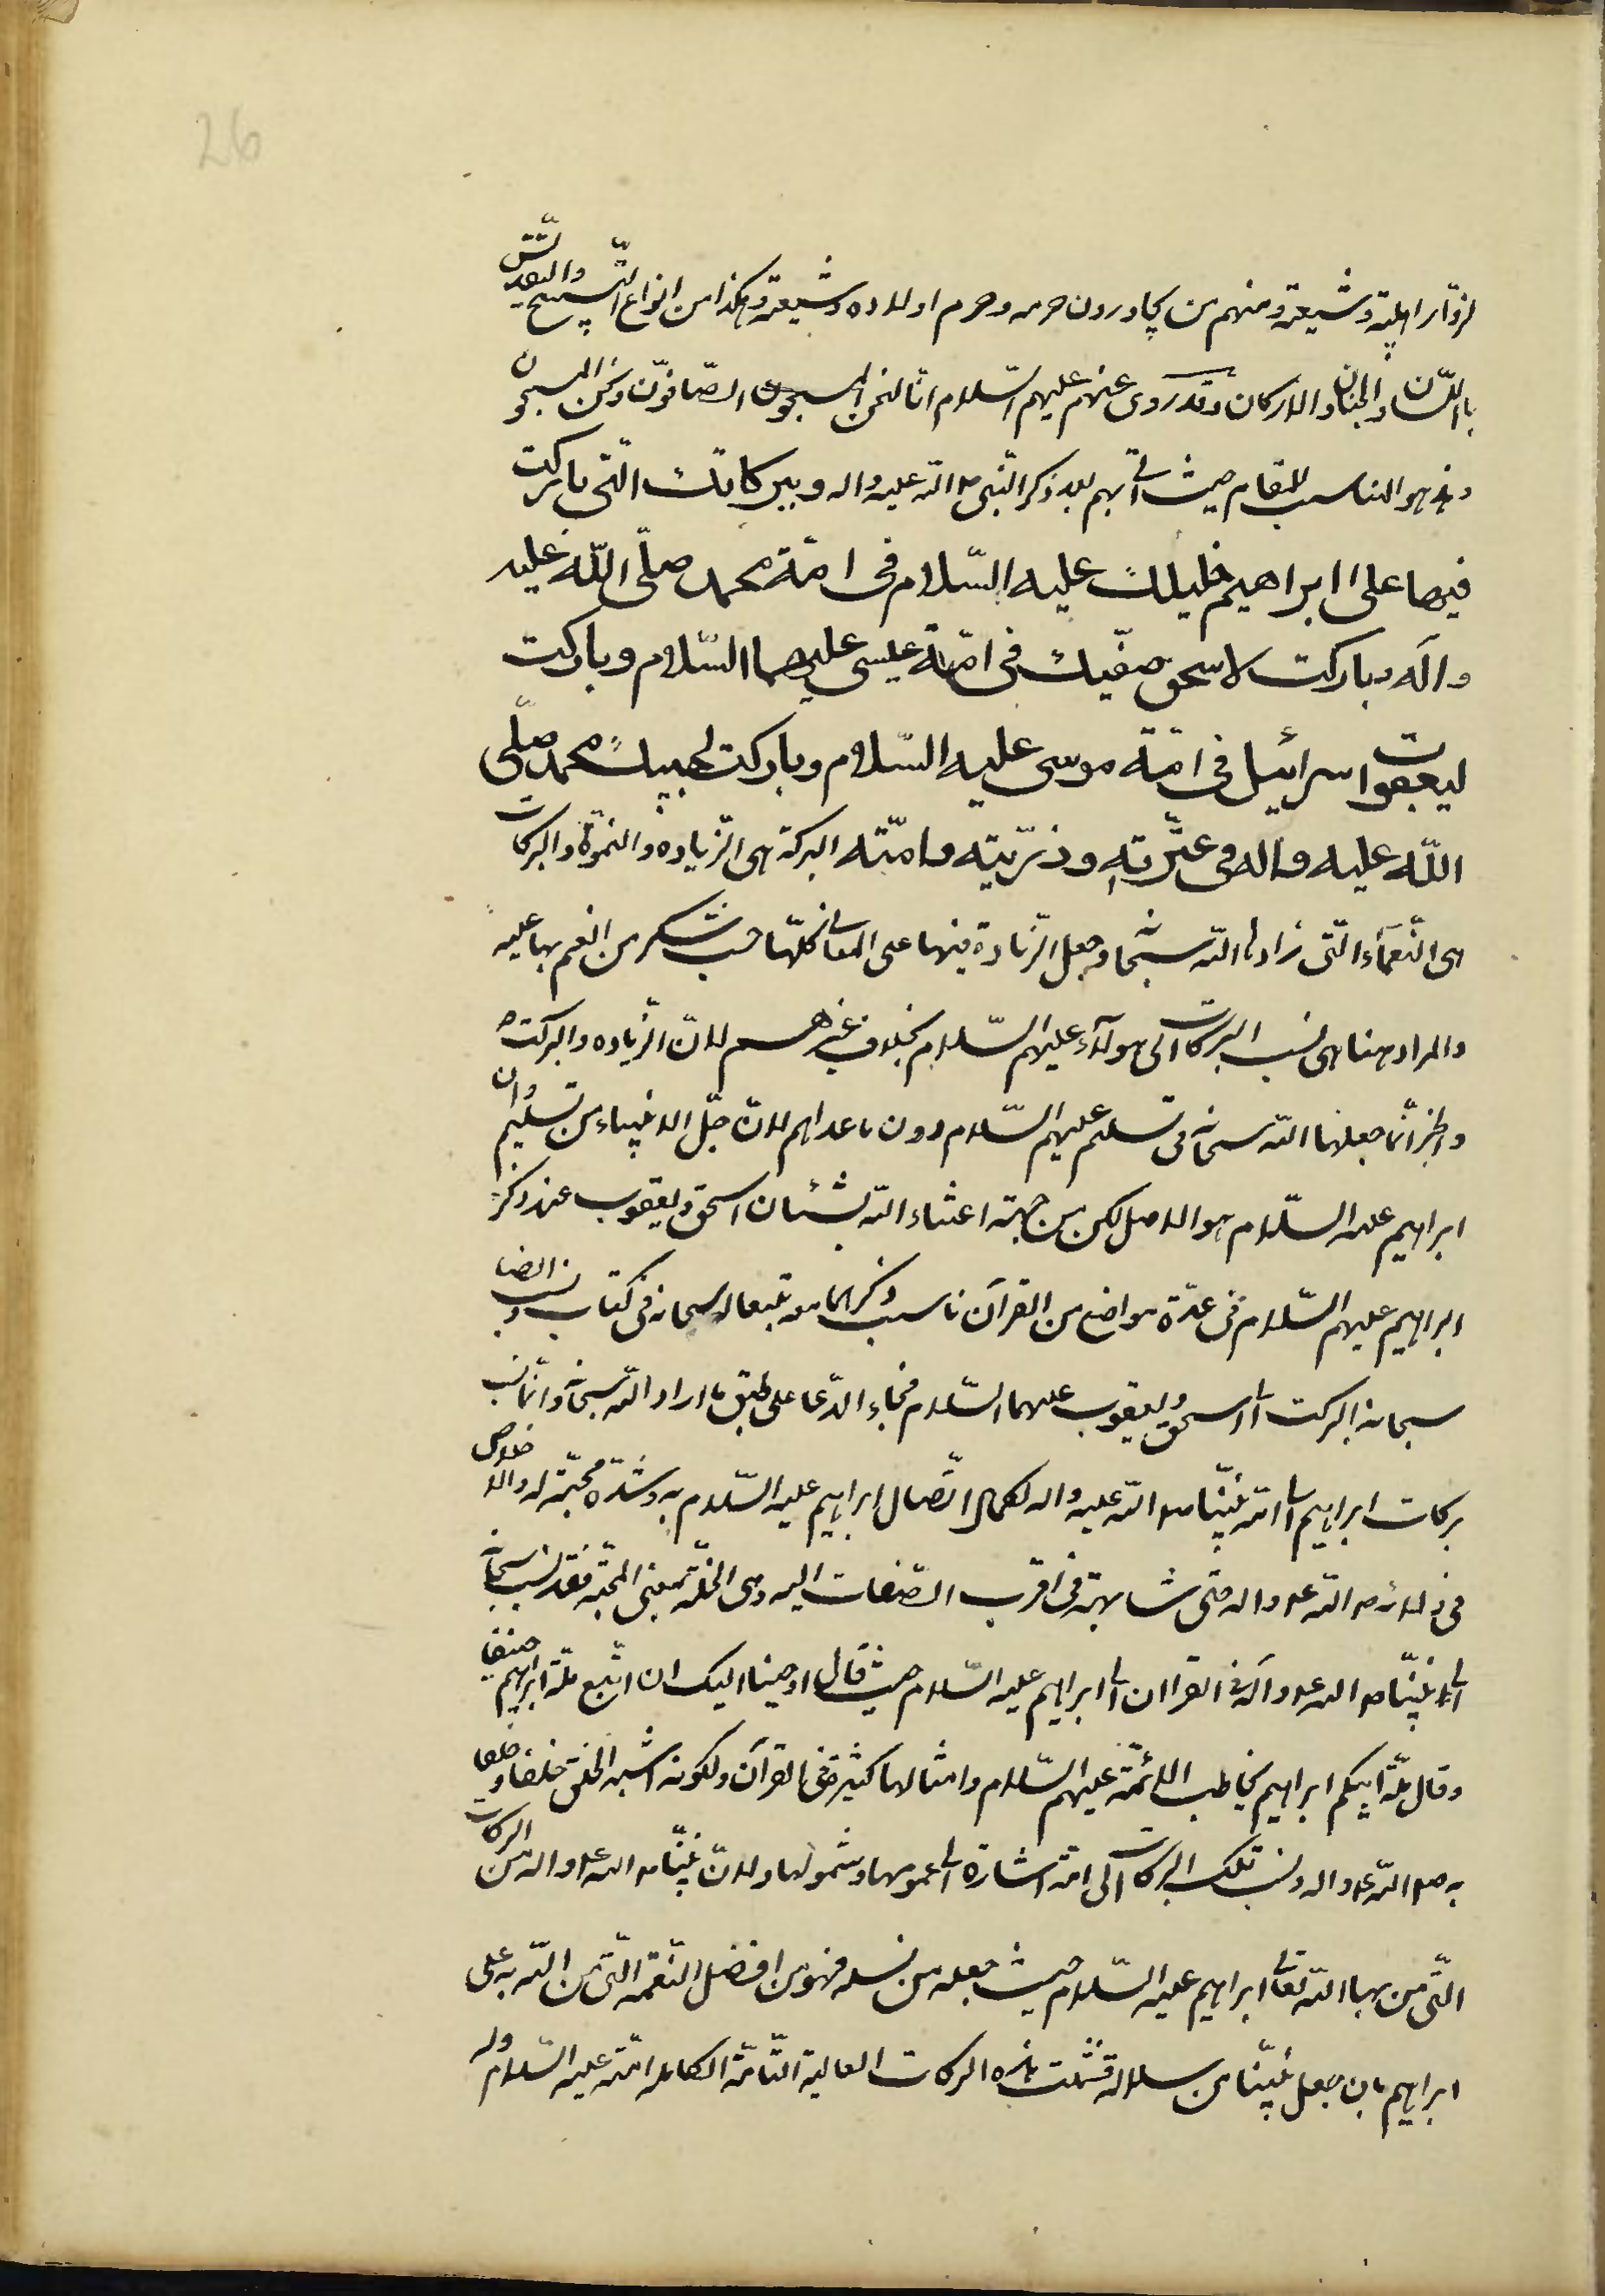 26
لزوّار اهلبيته و شيعته و منهم من يجاورون حرمه و حرم اولاده و شيعته و هكذا من انواع التّسبيح و التقديس
باللّسان و الجنان و الاركان و قد روى عنهم عليهم السّلام انّا لنحن الصّافّون و نحن المسبحون
و هذا هو المناسب للمقام حيث اتى بهم بعد ذكر النّبى ص اللّه عليه و اله و ببركاتك الّتى باركت
فيها على ابراهيم خليلك عليه السّلام فى امّة محمد صلّى اللّه عليه
و اله و باركت لاسحق صفيّك فى امّة عيسى عليهما السّلام و باركت
ليعقوب اسرائيل فى امّة موسى عليه السّلام و باركت لحبيبك محمد صلّى
اللّه عليه و اله فى عترته و ذرّيّته و امّته البركة هى الزّياده و النموّ و البركات
هى النّعمآء الّتى زادها اللّه سبحانه و جعل الزّيادة فيها على المعانى كلّها حسب شكر من انعم بها عليه
و المراد هنا هى نسب البركات الى هولآء عليهم السّلام بخلاف غيرهم لانّ الزّياده و البركت
و الخير انّما جعلها اللّه سبحانه فى نسلهم عليهم السّلام دون ما عداهم لانّ جلّ الانبياء من نسلهم و ان
ابراهيم عليه السّلام هو الاصل لكن من جهة اعتناء اللّه بشان اسحق و يعقوب عند ذكر
ابراهيم عليهم السّلام فى عدّة مواضع من القرآن ناسب ذكرهما معه تبعا له سبحانه فى كتابه و نسب ايضا
سبحانه البركت الى اسحق و يعقوب عليهما السّلام فجاء الدّعا على طبق ما اراد اللّه سبحانه و انّما نسب
بركات ابراهيم الى امّة نبيّنا ص اللّه عليه و اله لكمال اتّصال ابراهيم عليه السّلام به و شدّة محبّته له و الاخلاص
فى ولائه ص اللّه عليه و اله حتّى شابهه فى اقرب الصّفات اليه و هى الخلّة بمعنى المحبّة فقد نسب سبحانه
نبيّنا ص اللّه عليه و آله فى القران الى ابراهيم عليه السّلام حيث قال اوحينا اليك ان اتّبع ملّة ابراهيم حنيفا
و قال ملّة ابيكم ابراهيم يخاطب الائمّة عليهم السّلام و امثالها كثيرة فى القرآن و لكونه اشبه الخلق خلقا و خلقا
به ص اللّه عليه و اله و نسب تلك البركات الى امّته اشارة الى عمومها و شمولها و لانّ نبيّنا ص اللّه عليه و اله من البركات
الّتى منّ بها اللّه تعالى ابراهيم عليه السّلام حيث جعله من نسله فهو من افضل النّعمة الّتى منّ اللّه به على
ابراهيم بان جعل نبيّنا من سلالته فشملت هذه البركات العالية التّامّة الكامله امّته عليه السّلام و له